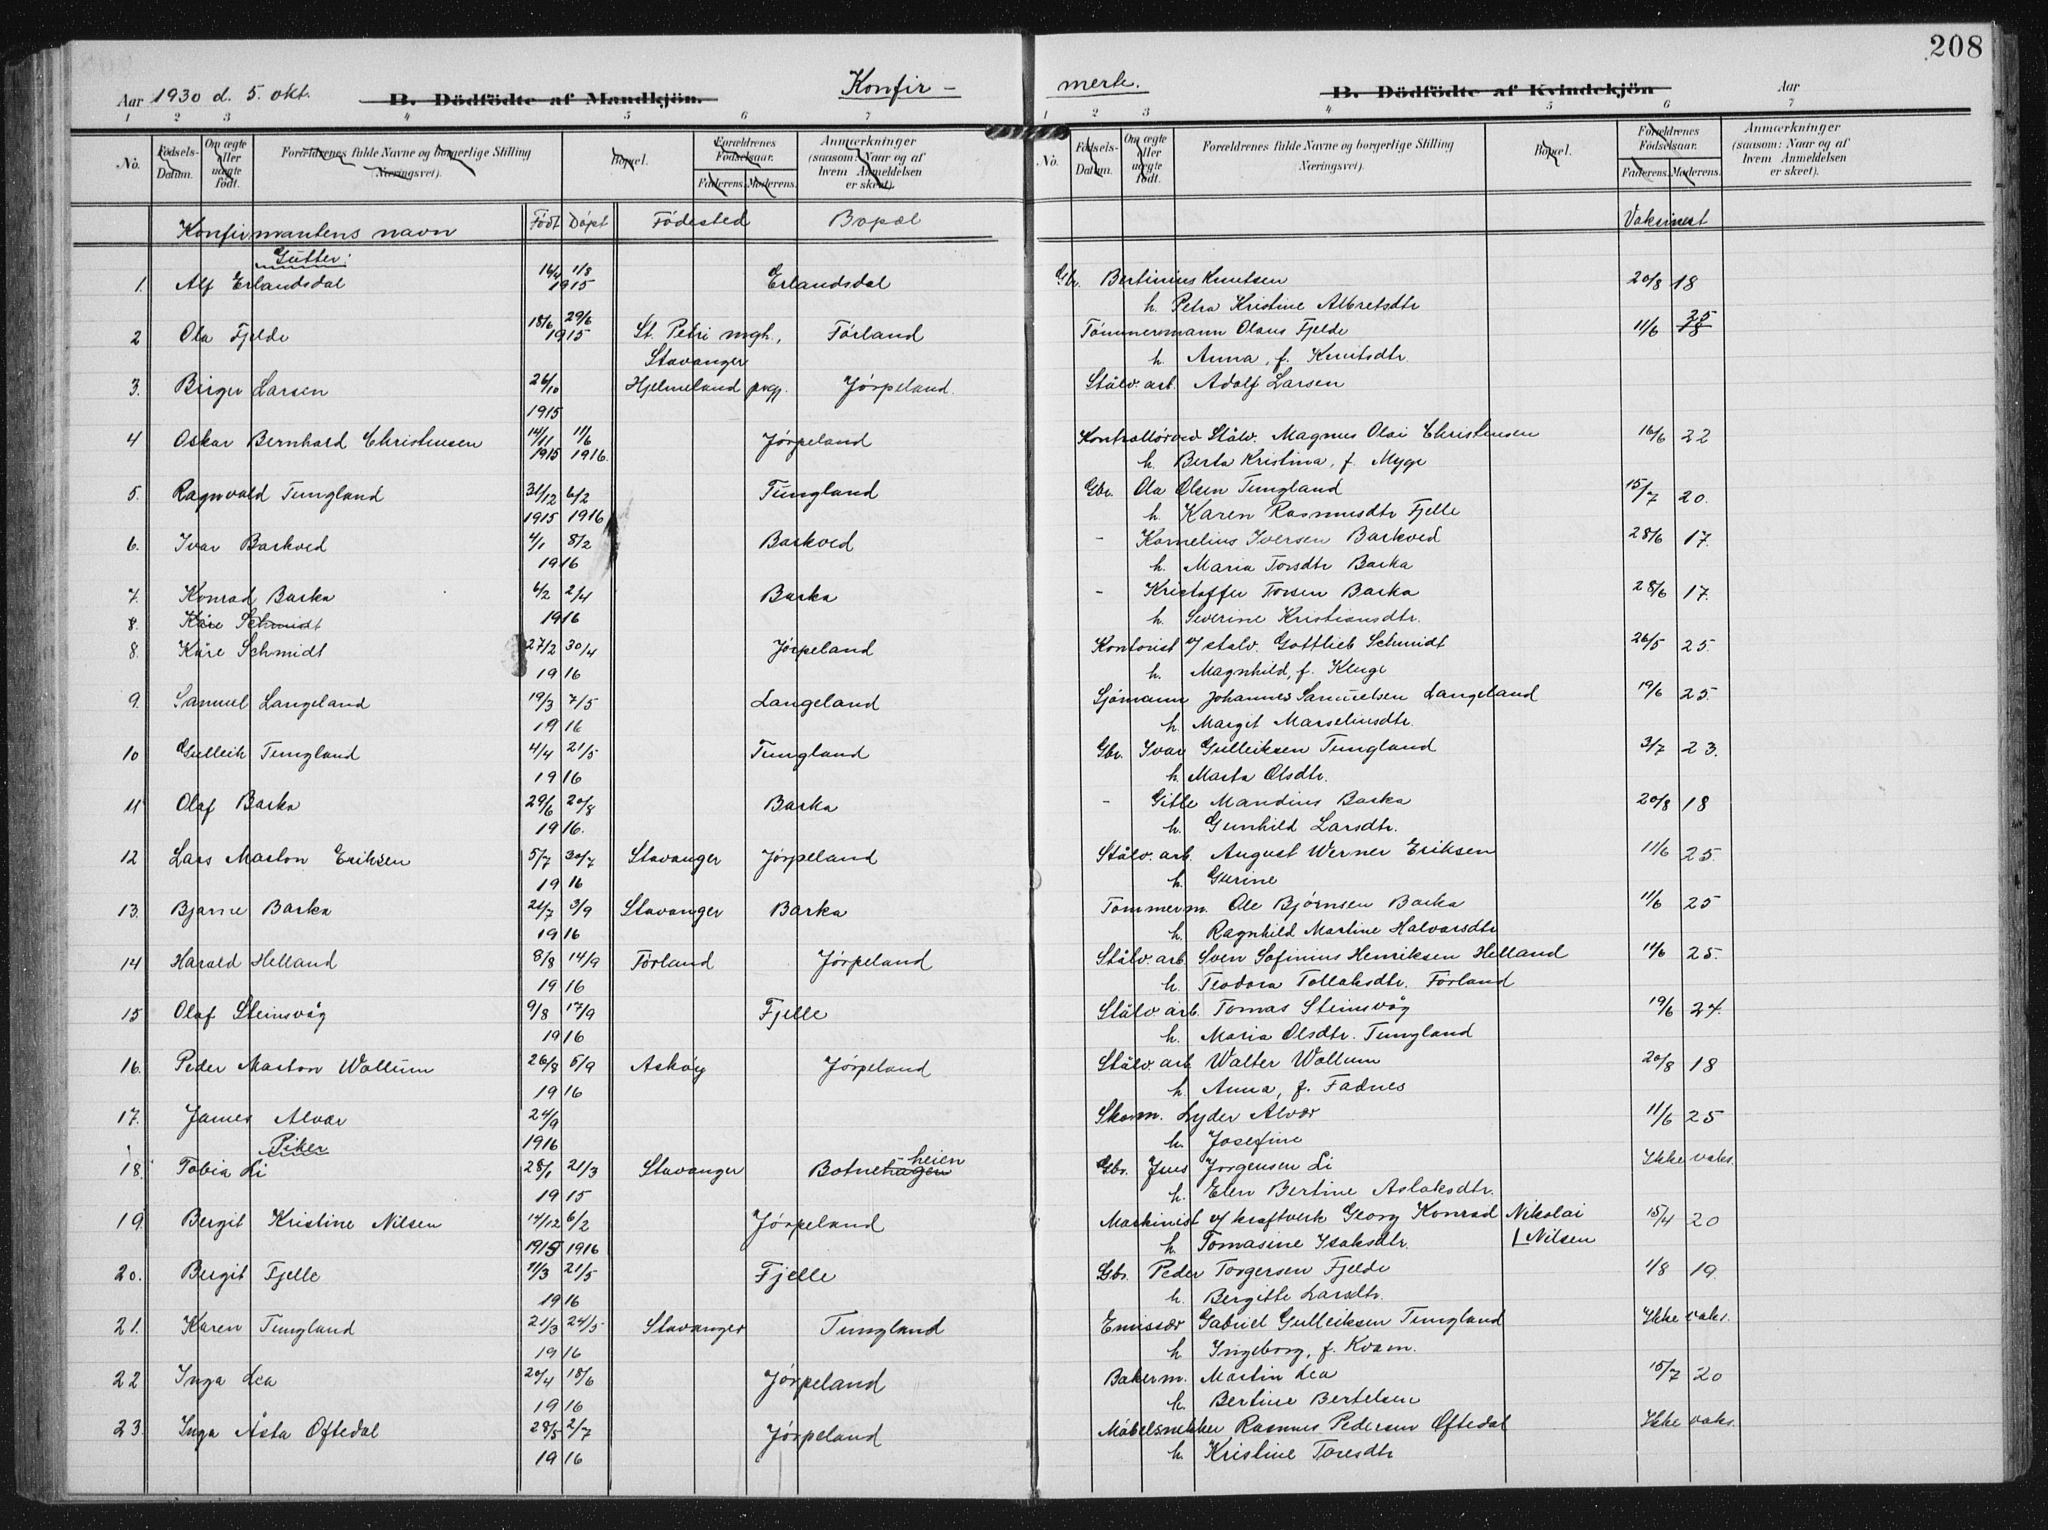 208
Aar 1930 d. 5. okt. B. Dödfödte af Mandkjön. Konfir-
merte. B. Dödfödte af Kvindekjön Aar
1 2 3 4 5 6 7
1 2 3 4 5 6 7
No. Födsels-Datum. Om ægte eller uægte födt. Forældrenes fulde Navne og borgerlige Stilling (Næringsvei). Bopæl. Forældrenes Födselsaar. Faderens. Moderens. Anmærkninger (saasom: Naar og af hvem Anmeldelsen er skeet).
No. Födsels-Datum. Om ægte eller uægte födt. Forældrenes fulde Navne og borgerlige Stilling (Næringsvei). Bopæl. Forældrenes Födselsaar. Faderens. Moderens. Anmærkninger (saasom: Naar og af hvem Anmeldelsen er skeet).
Konfirmantens navn Födt Döpt Födested Bopæl Vaksinert
Gutter:
1. Alf Erlandsdal 16/4 11/8 Erlandsdal Gbr. Bertinius Knutsen 20/8 18
1915 h. Petra Kristine Albretsdtr
2 Ola Fjelde 18/6 29/6 St. Petri mgh., Førland Tømmermann Olaus Fjelde 11/6 25
1915 Stavanger h. Anna, f. Knutsdtr. 18
3. Birger Larsen 26/10 Hjelmeland pregj. Jørpeland. Stålv. arb. Adolf Larsen
1915
4 Oskar Bernhard Christensen 14/11 11/6 Jørpeland Kontrollør ved Stålv. Magnus Olai Christensen 16/6 22
1915 1916. h. Berta Kristina, f. Myge
5. Ragnvald Tungland 31/12 6/2 Tungland Gbr. Ola Olsen Tungland 15/7 20.
1915 1916 h. Karen Rasmusdtr Fjelle
6. Ivar Barkved 4/1 8/2 Barkved - Kornelius Iversen Barkved 28/6 17.
1916 h. Maria Torsdtr Barka
7. Konrad Barka 6/2 2/4 Barka - Kristoffer Torsen Barka 28/6 17.
8. Kåre Schmidt 1916 h. Severine Kristiansdtr.
8. Kåre Schmidt 27/2 30/4 Jørpeland Kontorist v/ stalv. Gottlieb Schmidt 26/5 25.
1916 h. Magnhild, f. Kluge
9. Samuel Langeland 19/3 7/5 Langeland Sjømann Johannes Samuelsen Langeland 19/6 25.
1916 h. Margit Marseliusdtr.
10 Gulleik Tungland 4/4 21/5 Tungland Gbr. Ivar Gulleiksen Tungland 3/7 23.
1916 h. Marta Olsdtr.
11 Olaf Barka 29/6 20/8 Barka - Gitle Mandius Barka 20/8 18
1916. h. Gunhild Larsdtr.
12 Lars Marton Eriksen 5/7 30/7 Stavanger Jørpeland Stålv. arb. August Werner Eriksen 11/6 25.
1916 h. Gurine
13. Bjarne Barka 21/7 3/9 Stavanger Barka Tømmerm. Ole Bjørnsen Barka 11/6 25
1916 h. Ragnhild Martine Halvorsdtr
14 Harald Helland 8/8 14/9 Førland Jørpeland Stålv. arb Sven Sofinius Henriksen Helland 14/6 25.
1916 h. Teodora Tollaksdtr. Førland
15 Olaf Steinsvåg 9/8 17/9 Fjelle Stålv. arb. Tomas Steinsvåg 19/6 24.
1916 h. Maria Olsdtr. Tungland
16. Peder Marton Wallum 26/8 5/9 Askøy Jørpeland Stålv. arb Walter Wallum 20/8 18
1916 h. Anna, f. Fadnes
17. James Alvær 24/9 Skom. Lyder Alvær 11/6 25
Piker 1916 h. Josefine
18. Tobia Li 28/1 21/3 Stavanger Botnehagen heien Gbr. Jens Jørgensen Li Ikke vaks.
1915 h. Elen Bertine Aslaksdtr.
19. Bergit Kristine Nilsen 14/12 6/2 Jørpeland Maskinist v/ kraftverk Georg Konrad Nikolai 15/4 20
1915 1916 h. Tomasine Isaksdtr. Nilsen
20. Bergit Fjelle 11/3 21/5 Fjelle Gbr. Peder Torgersen Fjelde 1/8 19.
1916 h. Bergitte Larsdtr.
21. Karen Tungland 21/3 24/5 Stavanger Tungland Emissær Gabriel Gulleiksen Tungland Ikke vaks.
1916 h. Ingeborg, f. Kvam.
22 Inga Lea 20/4 18/6 Jørpeland Bakerm. Martin Lea 15/7 20
1916 h. Bertine Bertelsen
23. Inga Åsta Oftedal 28/5 2/7 Jørpeland Møbelsnekker Rasmus Pedersen Oftedal Ikke vaks.
1916 h. Kristine Toresdtr